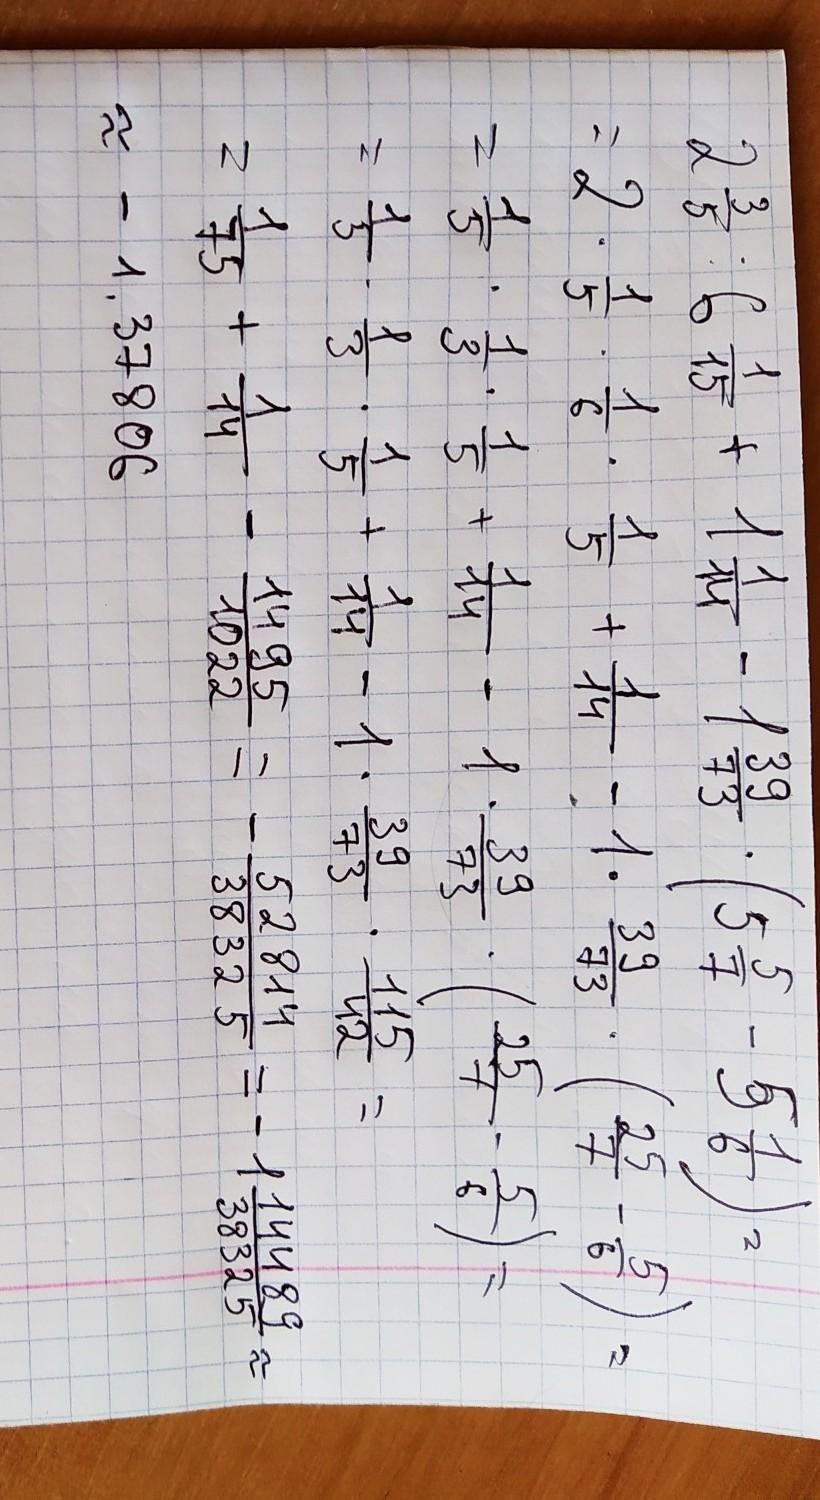 2 3/5 : 6 1/15 + 1 1/14 - 1 39/73 · (5 5/7 - 5 1/6) =
= 2 · 1/5 · 1/6 · 1/5 + 1/14 - 1 · 39/73 · (25/7 - 5/6) =
= 1/5 · 1/3 · 1/5 + 1/14 - 1 · 39/73 · (25/7 - 5/6) =
= 1/5 · 1/3 · 1/5 + 1/14 - 1 · 39/73 · 115/42 =
= 1/75 + 1/14 - 1495/1022 = - 52814/38325 = - 1 14489/38325 ≈
≈ - 1.37806